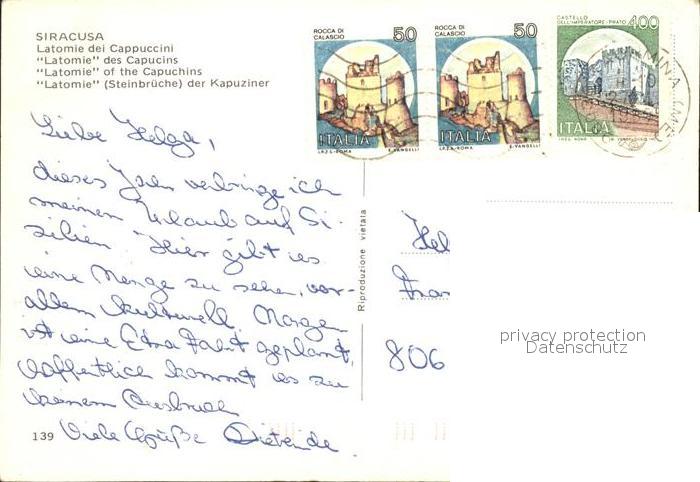 SIRACUSA
Latomie dei Cappuccini
"Latomie" des Capucins
"Latomie" of the Capuchins
"Latomie" (Steinbrüche) der Kapuziner
ROCCA DI
CALASCIO
50
ITALIA
I.P.Z.S.-ROMA E. VANGELLI
ROCCA DI
CALASCIO
50
ITALIA
I.P.Z.S.-ROMA E. VANGELLI
CASTELLO
DELL'IMPERATORE-PRATO
400
ITALIA
Liebe Helga,
dieses Jahr verbringe ich
meinen Urlaub auf Si-
zilien. Hier gibt es
eine Menge zu sehen, vor-
allem kulturell. Morgen
ist eine Etna Fahrt geplant,
hoffentlich kommt es zu
keinem Ausbruch
Viele Grüße
Riproduzione vietata
Hel
806
privacy protection
Datenschutz
139